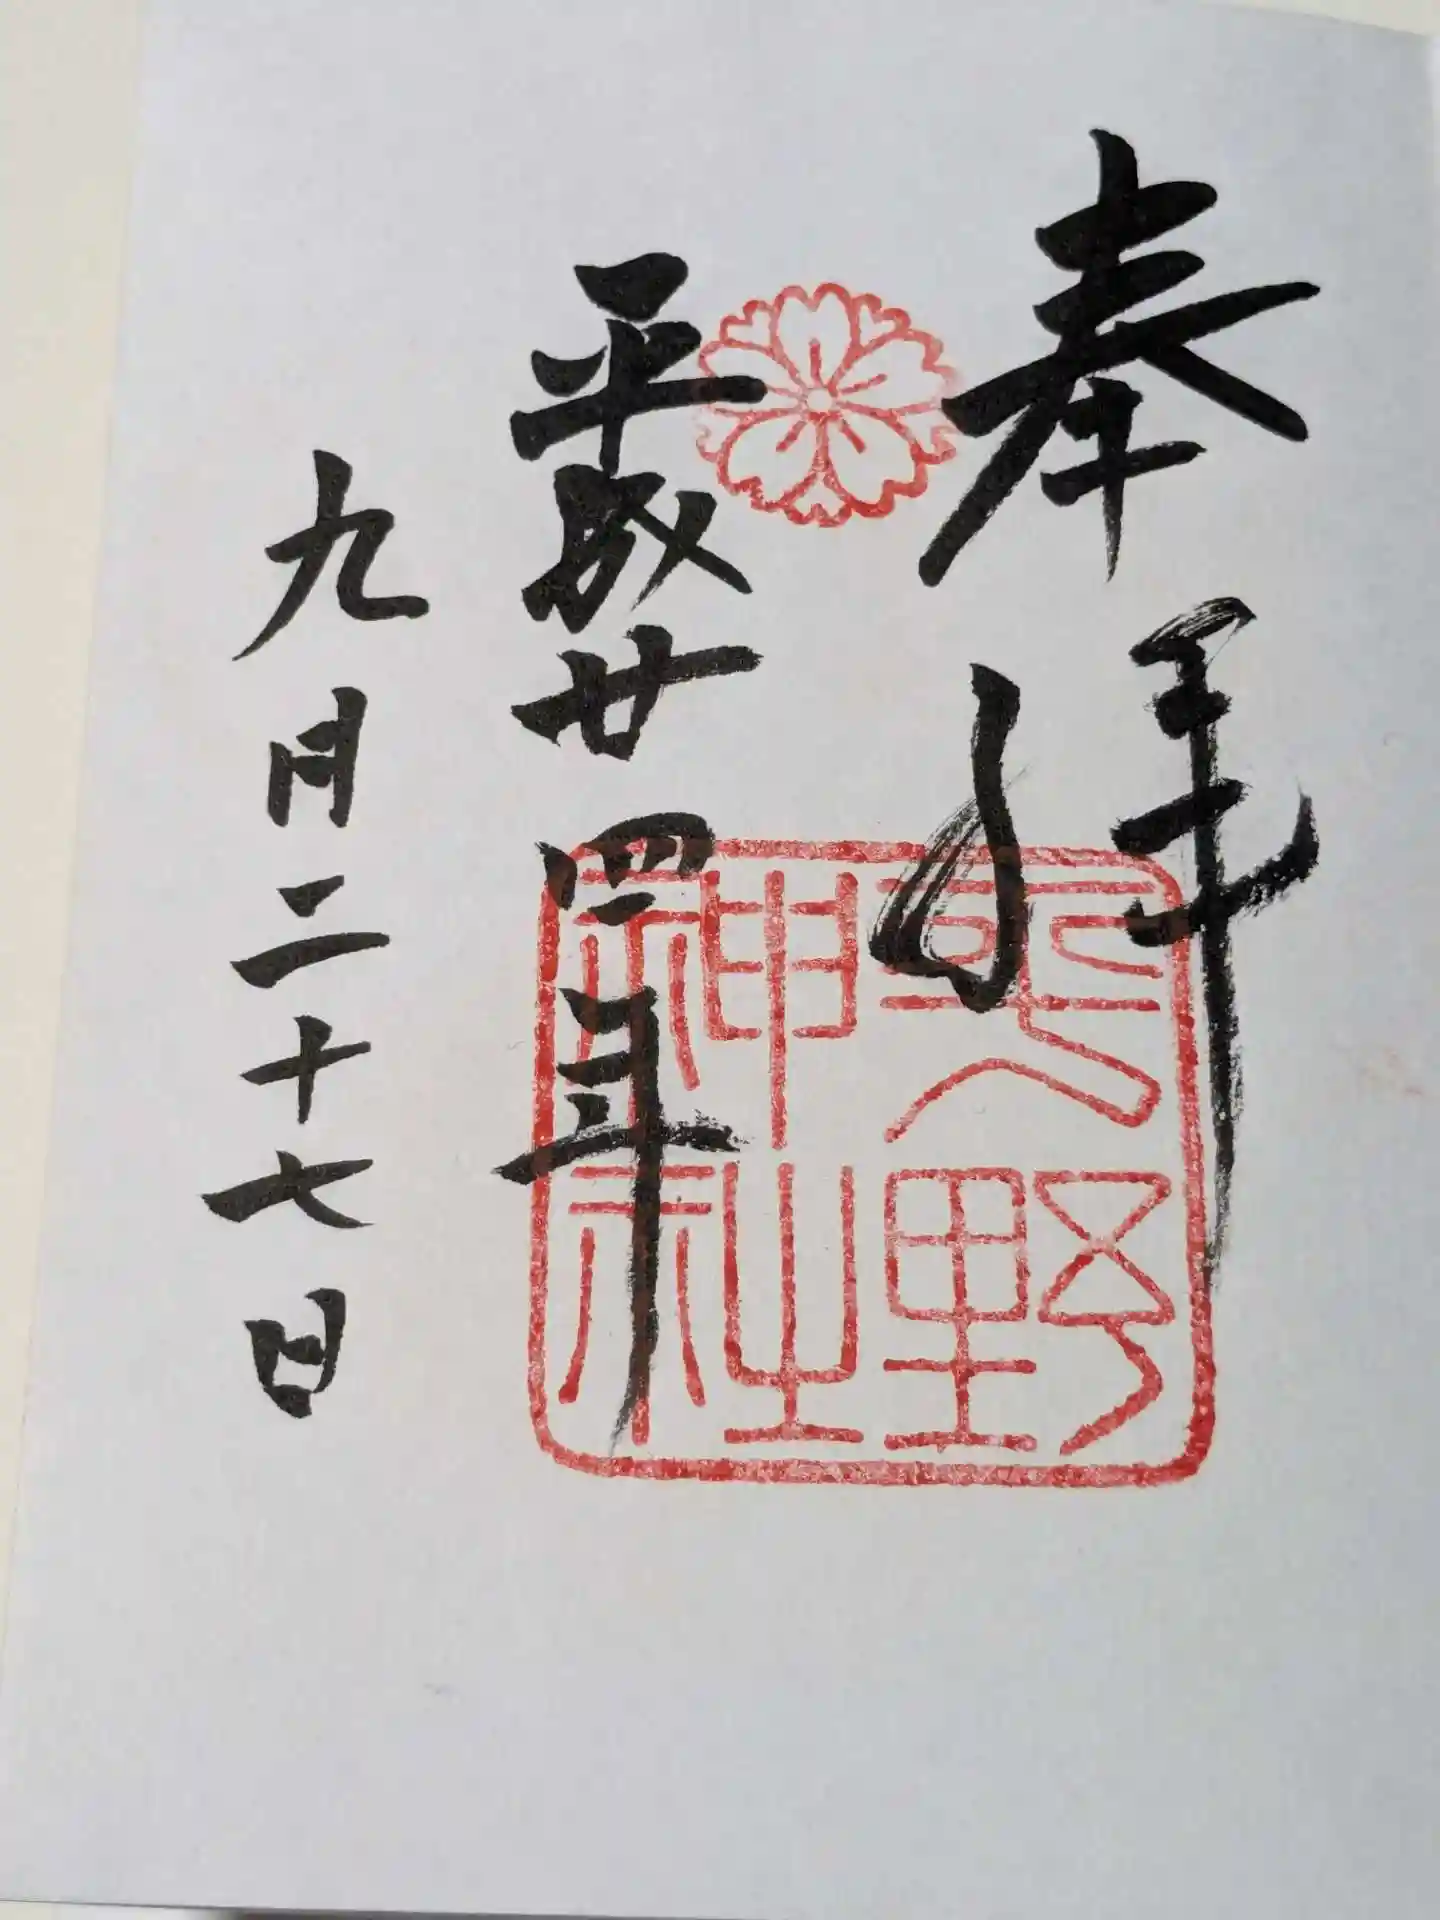 奉拝
平成廿四年
九月二十七日
平野
神社